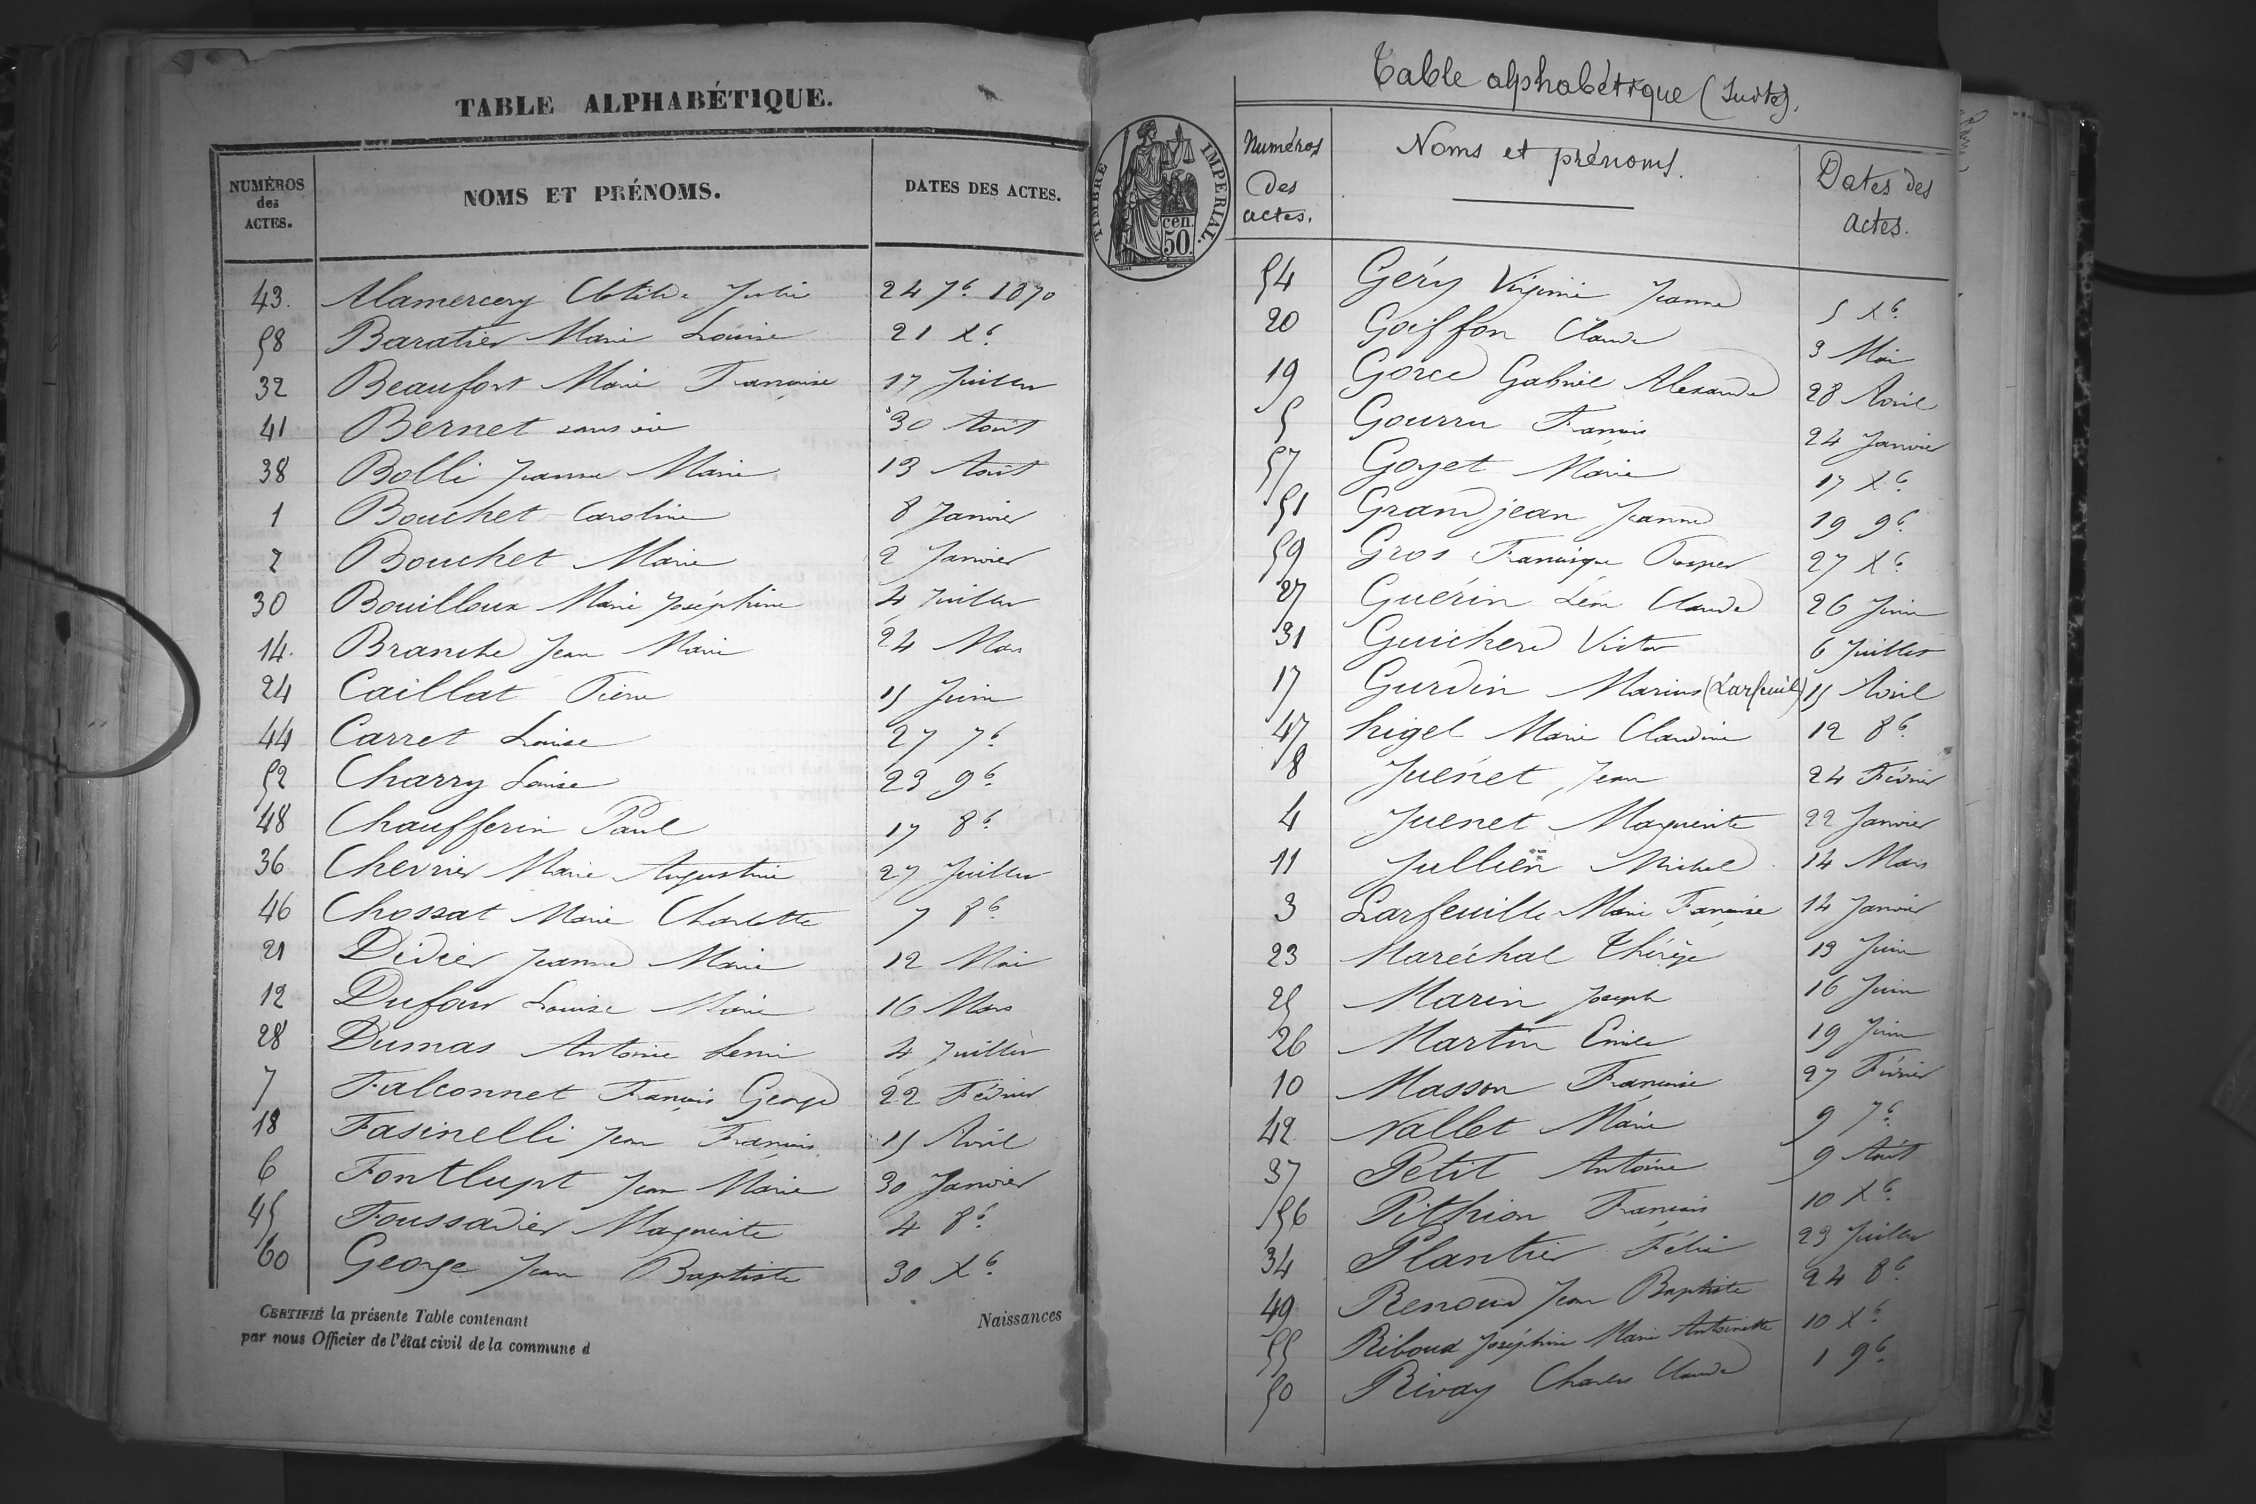 TABLE ALPHABÉTIQUE.
NUMÉROS des ACTES. NOMS ET PRÉNOMS. DATES DES ACTES.
43. Alamercery Clotilde Julie 24 7b. 1870
58 Baratier Marie Louise 21 Xb.
32 Beaufort Marie Françoise 17 Juillet
41 Bernet sans vie 30 Août
38 Bolli Jeanne Marie 13 Août
1 Bouchet Caroline 8 Janvier
2 Bouchet Marie 2 Janvier
30 Bouilloux Marie Joséphine 4 Juillet
14. Branche Jean Marie 24 Mars
24 Caillat Pierre 15 Juin
44 Carret Louise 27 7b.
52 Charry Louise 23 9b.
48 Chaufferin Paul 17 8b.
36 Chevrier Marie Augustine 27 Juillet
46 Chossat Marie Charlotte 7 8b.
21 Didier Jeanne Marie 12 Mai
12 Dufour Louise Marie 16 Mars
28 Dumas Antoine Remi 4 Juillet
7 Falconnet François George 22 Février
18 Fasinelli Jean François 15 Avril
6 Fontlupt Jean Marie 30 Janvier
45 Foussadier Marguerite 4 8b.
60 George Jean Baptiste 30 Xb.
CERTIFIÉ la présente Table contenant Naissances
par nous Officier de l'état civil de la commune d
TIMBRE IMPÉRIAL.
50 cen.
Table alphabétique (Suite).
Numéros des actes. Noms et prénoms. Dates des actes.
54 Gery Virginie Jeanne 5 Xb.
20 Goiffon Claude 3 Mai
19 Gorce Gabriel Alexandre 28 Avril
5 Gourru François 24 Janvier
57 Goyet Marie 17 Xb.
51 Grandjean Jeanne 19 9b.
59 Gros Francisque Prosper 27 Xb.
27 Guérin Léon Claude 26 Juin
31 Guicherd Victor 6 Juillet
17 Gurdin Marius (Larfeuil) 15 Avril
47 higel Marie Claudine 12 8b.
8 Juénet Jean 24 Février
4 Juenet Marguerite 22 Janvier
11 Jullien Michel 14 Mars
3 Larfeuille Marie Françoise 14 Janvier
23 Maréchal Thérèse 13 Juin
25 Marin Joseph 16 Juin
26 Martin Emile 19 Juin
10 Masson Françoise 27 Février
42 Nallet Marie 9 7b.
37 Petit Antoine 9 Août
56 Pithion François 10 Xb.
34 Plantier Félix 23 Juillet
49 Renoud Jean Baptiste 24 8b.
55 Riboux Joséphine Marie Antoinette 10 Xb.
50 Rivay Charles Claude 1 9b.